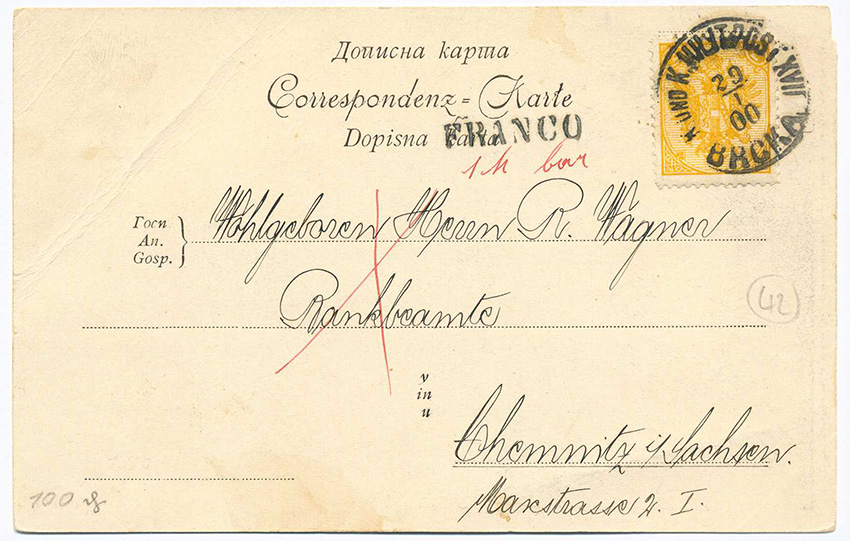 Дописна карта
Correspondenz-Karte
Dopisna karta
FRANCO
K. UND K. MILIT. POST XVII
29/1
00
BRCKA
1 M bar
Госп
An.
Gosp.
Wohlgeboren Herrn R. Wagner
Bankbeamte
42
v
in
u
Chemnitz i/Sachsen.
Maxstrasse 2. I.
100